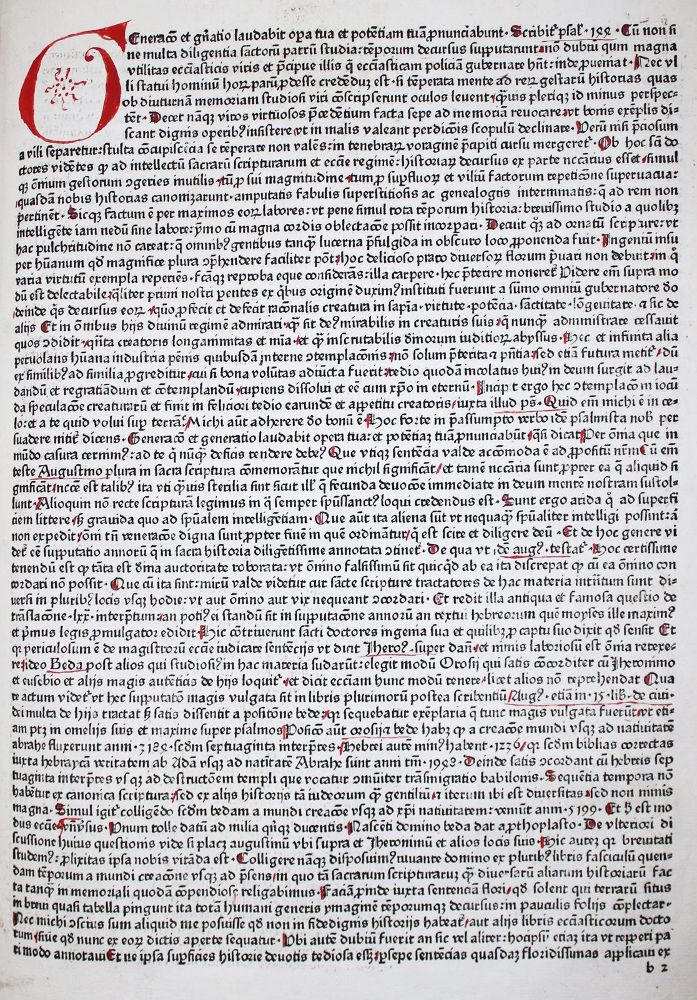 GEneracō et gn̄atio laudabit oꝑa tua et potētiam tuā ꝓnunciabunt · Scribit᷑ psal᷑ · 144 · Cū non si
ne multa diligentia sactoꝝ patrū studia: tēporum decursus supputarunt nō dubiū quin magna
vtilitas eccl̄asticis viris et p̄cipue illis qͥ eccl̄asticam policiā gubernare hn̄t: inde ꝓueniat · Nec vl
li statui hominū hoꝝ parū ꝓdesse credēdū est · si tēperata mente ad reꝝ gestarū historias quas
ob diuturnā memoriam studiosi viri cōscripserunt oculos leuent qͣuis pleriqꝫ id minus perspec-
tēt · Decet nāqꝫ viros virtuosos p̄cedētium facta sepe ad memoriā reuocare vt bonis exēplis di-
scant dignis operibꝫ insistere et in malis valeant perdicōis scopulū declinare · Verū nisi p̄ciosum
a vili separetur: stulta cōcupiscēcia se tēperare non valens: in tenebraꝝ voraginē p̄cipiti cursu mergeret᷑ · Ob hoc sācti do
ctores vidētes qͥ ad intellectū sacrarū scripturarum et eccl̄e regimē: historiaꝝ decursus ex parte nccāriꝰ esset simul
qꝫ om̄ium gestorum cōgeries inutilis tū ꝓ sui magnitudine tum ꝓ suꝑfluoꝝ et viliū factorum repeticōne superuacua:
quasdā nobis historias canonizarunt · amputatis fabulis supersticiosis ac genealogijs interminatis: q̄ ad rem non
pertinent · Sicqꝫ factum ē per maximos eoꝝ labores: vt pene simul tota tēporum historia: breuissimo studio a quolibꝫ
intelligēte iam nedū sine labore: ymo cū magna cordis oblectacōe possit incorꝑari · Decuit qͦꝫ ad ornatū scripture: vt
hac pulchritudine nō careat: q̄ omnibꝫ gentibus tanqͣꝫ lucerna p̄fulgida in obscuro loco ꝓponenda fuit · Ingeniū insu
per hūanum qd̄ magnifice plura cōp̄hendere faciliter pōt hoc delicioso prato diuersoꝝ florum p̄uari non debuit in qͦ
varia virtutū exempla reperiēs · fcāqꝫ reproba eque cōsiderās: illa carpere · hec p̄terire moneret᷑ Videre em̄ supra mo
dū est delectabile qͣliter primi nostri pentes ex qͥbus origine duximꝰ instituti fuerunt a sūmo omniū gubernatore do
deinde qͣs decursus eoꝝ quo ꝓfecit et defecit racōnalis creatura in sapīa · virtute · potēcia · sactitate · lōgeuitate · ⁊ sic de
alijs Et in omībus hijs diuinū regimē admirari qͣm sit deꝰ mirabilis in creaturis suis qͥ nunqͣꝫ administrare cessauit
quos ꝯdidit quāta creatoris longanimitas et mīa et qͣm inscrutabilis dīnorum iudicioꝝ abyssus · Hec et infinita alia
peruolans hūana industria pēnis quibusdā īterne ꝯtemplacōnis nō solum p̄terita ⁊ pn̄tia sed etiā futura metit᷑ dū
ex similibꝰ ad similia ꝓgreditur cui si bona volūtas adiūcta fuerit tedio quodā incolatus huiꝰ in deum surgit ad lau-
dandū et regratiandum et cōtemplandū cupiens dissolui et eē cum xp̄o in eternū · Incip̄t ergo hec ꝯtemplacō m iocū
da speculacōe creaturarū et finit in felicioꝛi tedio earundē et appetitu creatoris iuxta illud ps̄ · Quid em̄ michi ē in ce-
lo: et a te quid volui suꝑ terrā: Michi aūt adherere do bonū ē Hoc forte in p̄assumpto verbo idē psalmista nob̄ per
suadere nitit᷑ dicens · Generacō et generatio laudabit opera tua: et potētiaꝫ tuā ꝓnunciabūt qͣsi dicat Per om̄ia que in
mūdo casura cernimꝰ: ad te qͥ nūqͣꝫ deficis tendere debeꝰ Que vtiqꝫ sētēcia valde accōmoda ē ad ꝓpositū nr̄m Cū em̄
teste Augustino plura in sacra scriptura cōmemorātur que nichil significāt et tamē nccāria sunt ꝓpter ea q̄ aliquid si
gnificāt: nccē est taliꝫ ita vti qͣuis sterilia sint sicut illꝰ qͥ fecunda deuocōe immediate in deum mente nostram sustol-
lunt · Alioquin nō recte scripturā legimus in qͣ semper sp̄ussanctꝰ loqui credendus est · Sunt ergo arida qͥ ad superfi
ciem littere sꝫ grauida quo ad sp̄ualem intelligētiam · Que aūt ita aliena sūt vt nequaqͣꝫ sp̄ualiter intelligi possint: ā
non expedit om̄i tn̄ veneracōe digna sunt ꝓpter finē in quē ordinātur qͥ est scire et diligere deū · Et de hoc genere vi
det᷑ eē supputatio annorū q̄ in sacra historia diligētissime annotata ꝯtinet᷑ · De qua vt idē aug᷑ testat᷑ · Hoc certissime
tenendū est qͥ tāta est dīna auctoritate roborata: vt om̄ino falsissimū sit quicqͥd ab ea ita discrepat qͥ cū ea om̄ino con
cordari nō possit · Que cū ita sint: mirū valde videtur cur sācte scripture tractatores de hac materia intātum sunt di-
uersi in pluribꝰ locis vsqꝫ hodie: vt aut om̄ino aut vix nequeant ꝯcordari · Et redit illa antiqua et famosa questio de
trāslacōe ·lxx· interp̄tum: an potiꝰ ei standū sit in supputacōne annorū an textui hebreorum quē moyses ille maximꝰ
et p̄mus legis ꝓmulgator edidit Hic cōtriuerunt sācti doctores ingenia sua et quilibꝫ ꝓ captu suo dixit qd̄ sensit Et
qꝫ periculosum ē de magistrorū eccl̄ie iudicare sentēcijs vt dicit Jhero᷑ · super dan̄ et nimis laboriosū est om̄ia retexe-
re: ideo Beda post alios qui studiosiꝰ in hac materia sudarūt: elegit modū Orosij qui satis cōcorditer cū Jheronimo
et eusebio et alijs magis autēticis de hijs loquit᷑ et dicit eccl̄iam hunc modū tenere licet alios nō reprehendat Qua
re actum videt᷑ vt hec supputatō magis vulgata sit in libris plurimorū postea scribentiū Aug᷑ · etiā in · 15 · lib̄ · de ciui-
dei multa de hijs tractat sꝫ satis dissentit a positōne bede qꝫ sequebatur exēplaria q̄ tunc magis vulgata fuerūt vt eti-
am ptꝫ in omelijs suis et maxime super psalmos Posicō aūt orosij ⁊ bede habꝫ qͥ a creacōe mundi vsqꝫ ad natiuitatē
abrahe fluxerunt anni · 3184 · sc̄dm septuaginta interp̄tes Hebrei autē minꝰ habent · 1236 qꝫ sc̄dm biblias correctas
iuxta hebraycā veritatem ab Adā vsqꝫ ad natitatē Abrahe sunt anni tm̄ · 1948 · Deinde satis ꝯcordant cū hebreis sep
tuaginta interp̄res vsqꝫ ad destructōem templi que vocatur ꝯmuniter trāsmigratio babilonis · Sequētia tempora nō
habētur ex canonica scriptura: sed ex alijs historijs tā iudeorum qͣꝫ gentiliū iterum ibi est diuersitas sed non nimis
magna · Simul igit᷑ colligēdo sc̄dm bedam a mundi creacōne vsqꝫ ad xp̄i natiuitatem: veniunt anni · 5199 · Et hꝰ est mo
dus eccl̄e vniuersus · Vnum tolle datū ad milia qͥnqꝫ ducentis · Nascēti domino beda dat a ꝓthoplasto · De vlteriori di
scussione huius questionis vide si placꝫ augustinū vbi supra et Jheronimū et alios locis suis Hic autē: qꝫ breuitati
studemꝰ: ꝓlixitas ipsa nobis vitāda est · Colligere nāqꝫ disposuimꝰ iuuante domino ex pluribꝫ libris fasciculū quen-
dam tēporum a mundi creacōne vsqꝫ ad p̄sens in quo tā sacrarum scripturarū qͣꝫ diuersarū aliarum historiarū fac
ta tanqͣꝫ in memoriali quodā cōpendiosꝰ religabimus · Faciā ꝓinde iuxta sentenciā flori qd̄ solent qui terrarū situs
in breui quasi tabella pingunt ita totā humani generis ymaginē tēporumqꝫ decursus: in paucis folijs cōplectar ·
Nec michi ꝯscius sum aliquid me posuisse qd̄ non in fidedignis historijs habeat᷑ aut alijs libris eccl̄asticorum docto
rum siue qd̄ nunc ex eoꝝ dictis aperte sequatur · Vbi autē dubiū fuerit an sic vel aliter: hocipsū etiaꝫ ita vt repperi pa
ti modo annotaui Et ne ipsa suꝑficies historie deuotis tediosa esset persepe sentēcias quasdaꝫ floridissimas applicaui ex
b 2